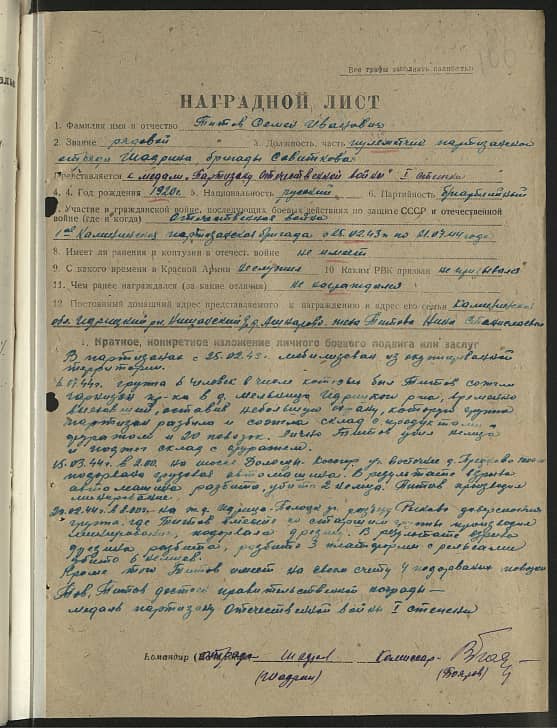 186
Все графы заполнять полностью
НАГРАДНОЙ ЛИСТ
1. Фамилия имя и отчество Титов Семен Иванович
2. Звание рядовой 3. Должность, часть пулеметчик партизанского
отряда Шадрина бригады Савиткова
Представляется к медали "Партизану Отечественной войны" I степени
4. Год рождения 1920г. 5. Национальность русский 6. Партийность беспартийный
7. Участие в гражданской войне, последующих боевых действиях по защите СССР и отечественной
войне (где и когда) Отечественная война
1ая Калининская партизанская бригада с 25.02.43г. по 21.07.44 года
8. Имеет ли ранения и контузии в отечест. войне не имеет
9. С какого времени в Красной Армии не служил 10 Каким РВК призван не призывался
11. Чем ранее награждался (за какие отличия) не награждался
12 Постоянный домашний адрес представляемого к награждению и адрес его семьи Калининская
обл. Идрицкий рн. жена Титова Нина Станиславовна
I. Краткое, конкретное изложение личного боевого подвига или заслуг
В партизанах с 25.02.43г. мобилизован из оккупированной
территории.
07.44г. группа 6 человек в числе которых был Титов сожгли
гарнизон пр-ка в д. мельница Идрицкого р-на, временно
выехавший, оставив небольшую охрану, которую группа
партизан разбила и сожгла склад с продуктами
фуражом и 20 повозок. Лично Титов убил немца
и поджег склад с фуражом.
15.03.44г. в 2.00 на шоссе
подорвана грузовая автомашина. В результате взрыва
автомашина разбита, убито 2 немца. Титов производил
минирование.
на ж.д. Идрица-Полоцк
группа, где Титов вместе со старшим группы производил
минирование, подорвала дрезину. В результате взрыва
дрезина разбита, разбито 3 платформы с рельсами
убито 6 немцев.
Кроме того Титов имеет на своем счету 4 подорваных повозки
Тов. Титов достоин правительственной награды—
медаль партизану Отечественной войны I степени
Командир отряда Комиссар
(Шадрин) (Бояров)